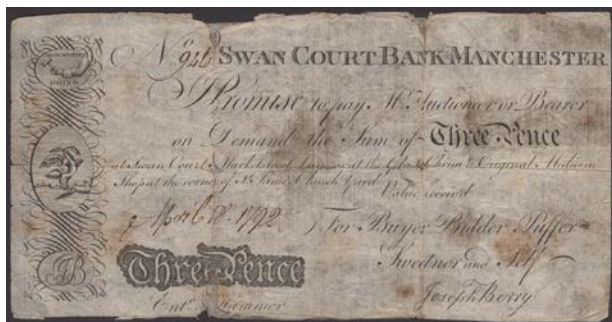 No. 946 SWAN COURT BANK MANCHESTER
I Promise to pay Mr. Auctioneer or Bearer
on Demand the Sum of Three Pence
at Swan Court Market street Lane or at the & Original Medicine
Shop at the corner of Church Yard
Value received
April 1792 For Buyer Bidder Puffer
Sweetner and Self
Three Pence
Joseph Berry
Entd. Hammer
JB